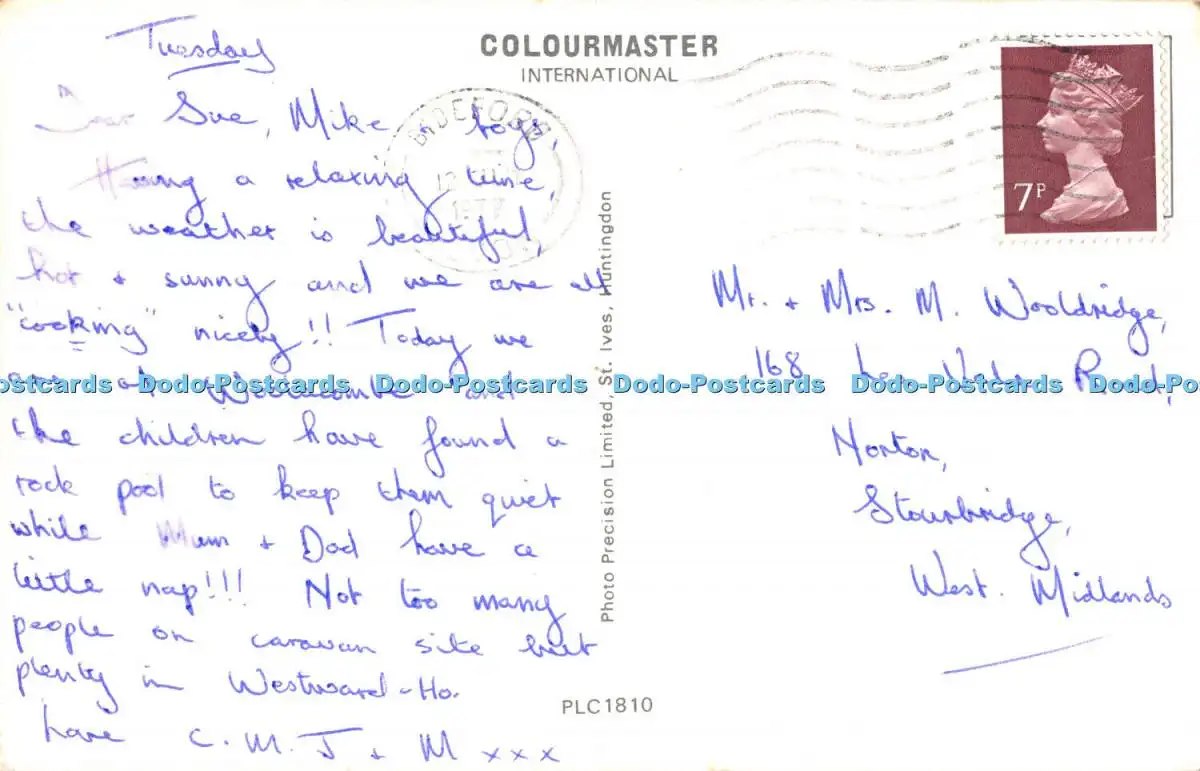 Tuesday
Dear Sue, Mike + boys,
Having a relaxing time,
the weather is beautiful,
hot + sunny and we are all
"cooking" nicely!! Today we
are at and
the children have found a
rock pool to keep them quiet
while Mum + Dad have a
little nap!!! Not too many
people on caravan site but
plenty in Westward-Ho.
Love C. M. J + M xxx
COLOURMASTER
INTERNATIONAL
BIDEFORD
1977
7P
Photo Precision Limited, St. Ives, Huntingdon
Mr. + Mrs. M. Wooldridge,
168 Road,
Norton,
Stourbridge,
West. Midlands
PLC1810
Postcards Dodo-Postcards Dodo-Postcards Dodo-Postcards Dodo-Postcards Dodo-Postcards